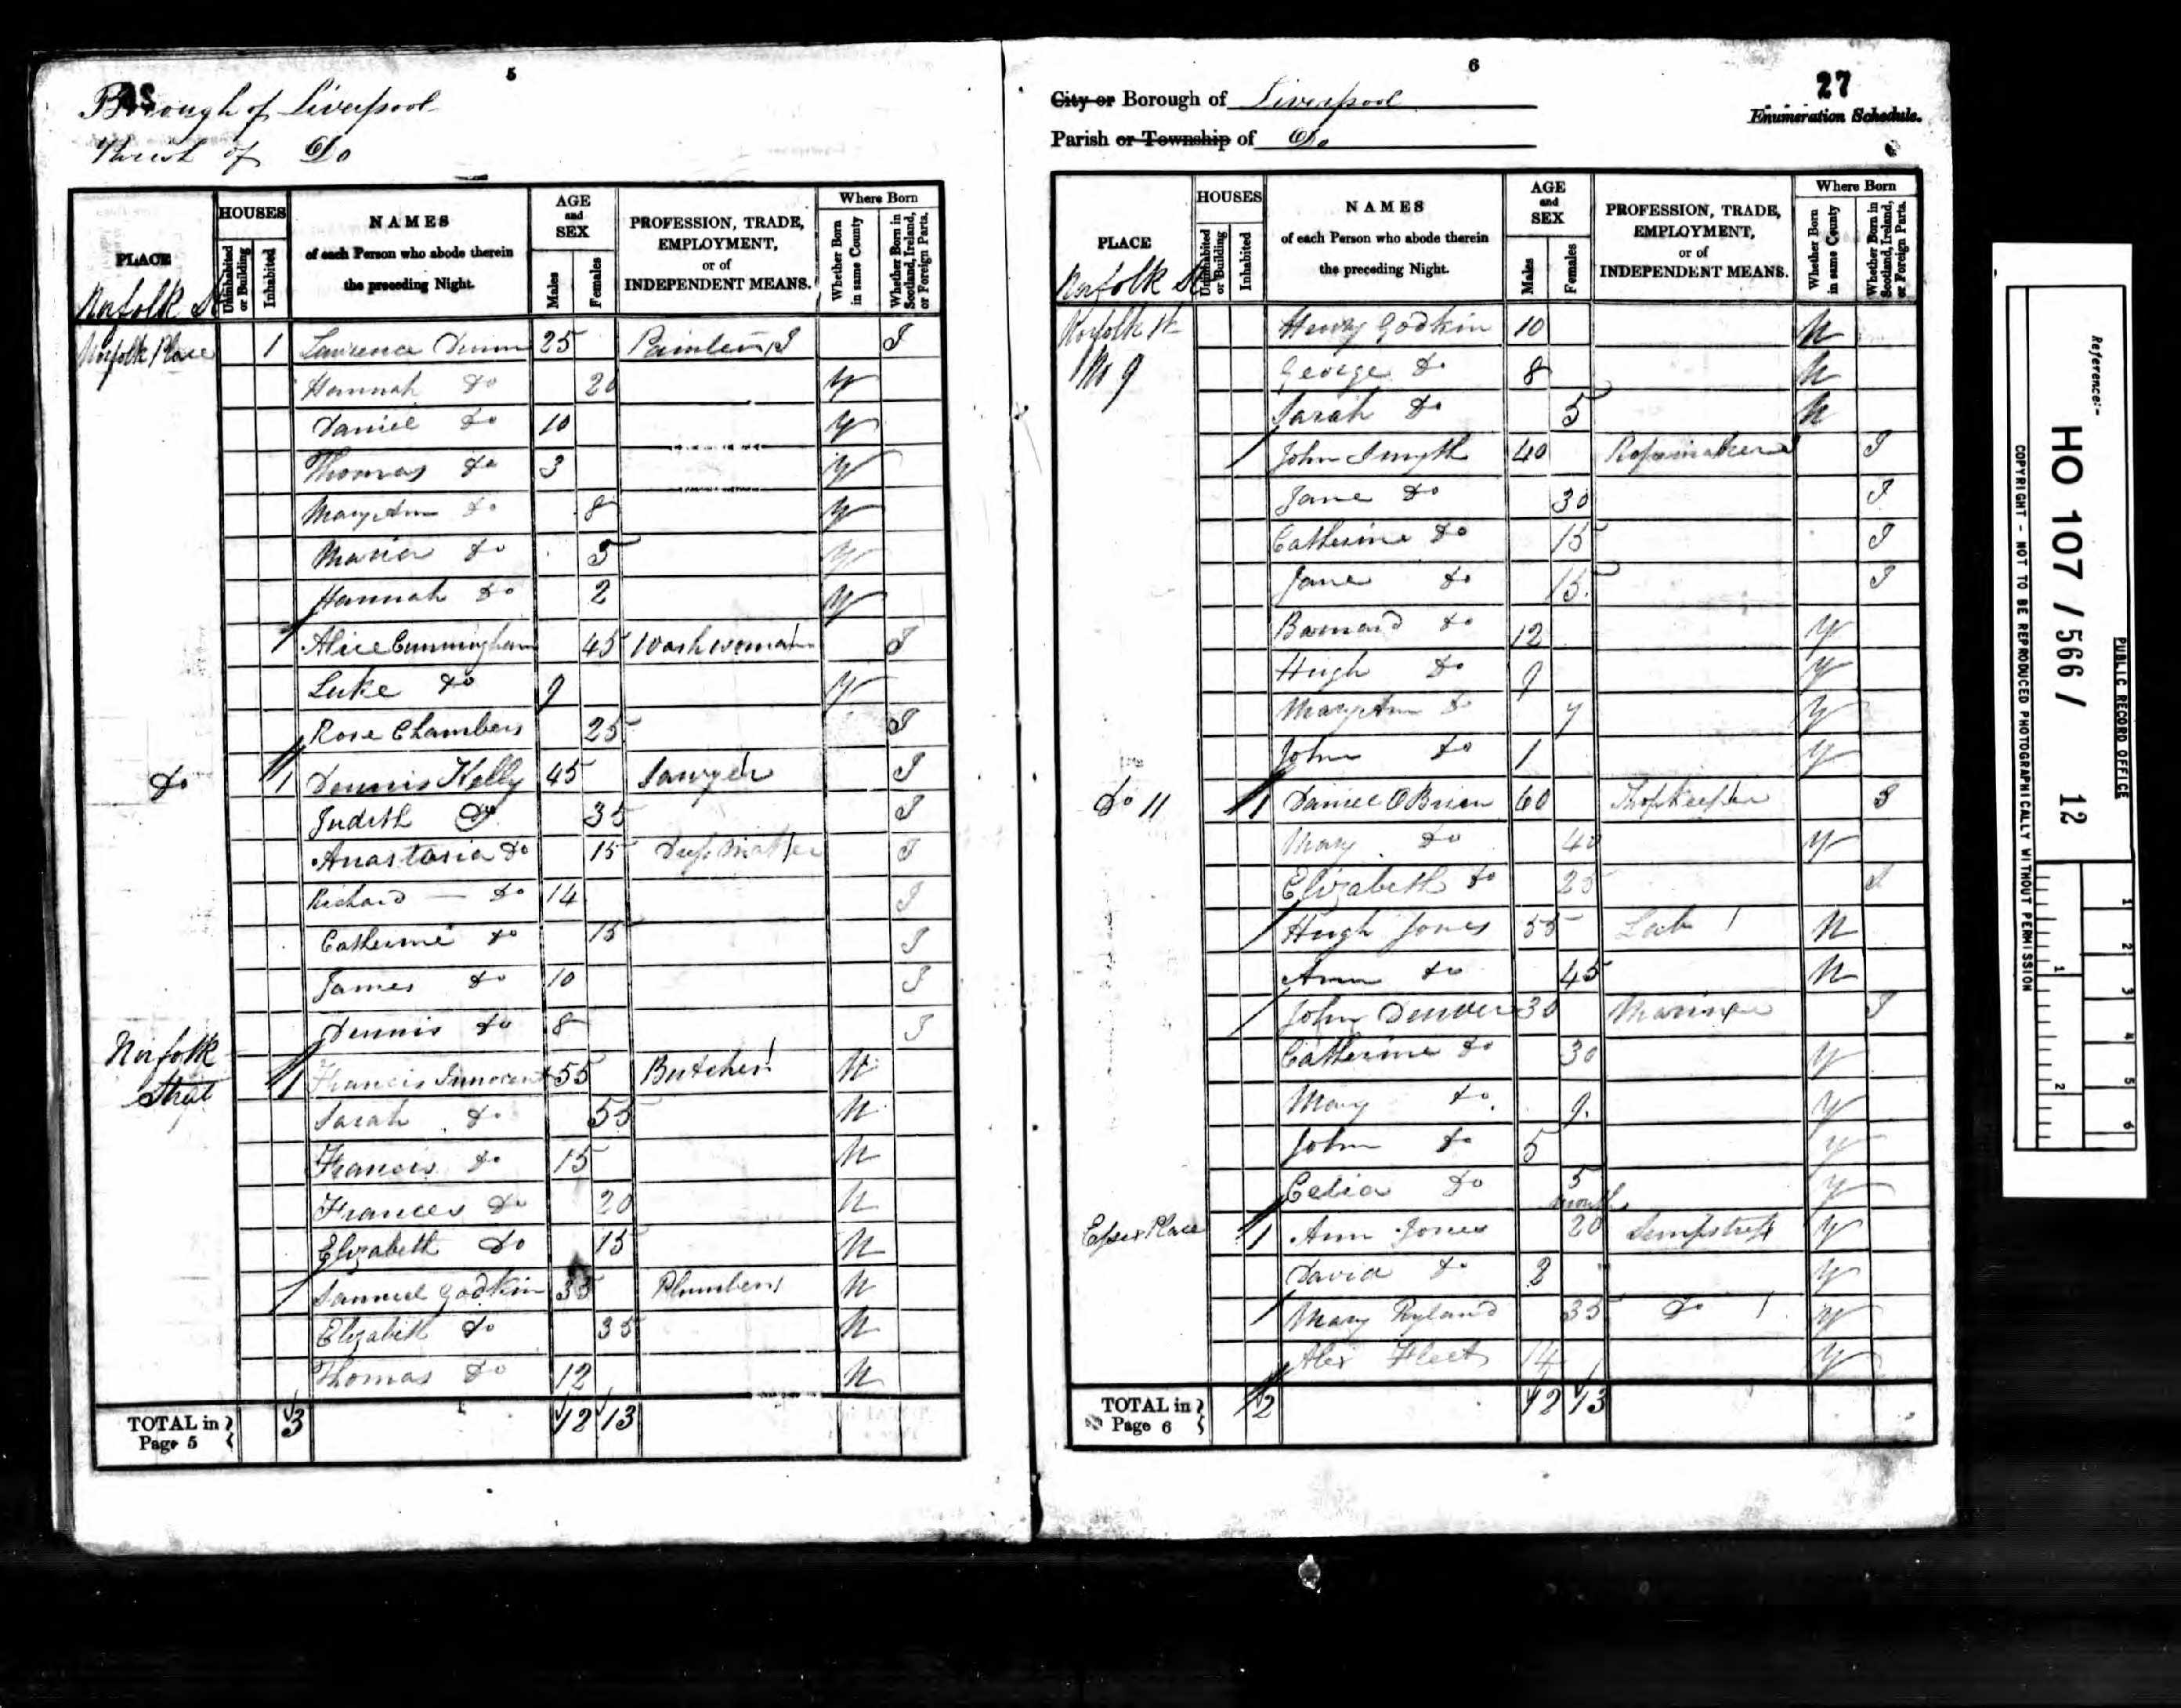 5
Borough of Liverpool
Parish of Do
PLACE
HOUSES
Uninhabited or Building
Inhabited
NAMES
of each Person who abode therein
the preceding Night.
AGE
and
SEX
Males
Females
PROFESSION, TRADE,
EMPLOYMENT,
or of
INDEPENDENT MEANS.
Where Born
Whether Born in same County
Whether Born in Scotland, Ireland, or Foreign Parts.
Norfolk St
Norfolk Place 1 Lawrence Dunn 25 Painter J I
Hannah Do 20 Y
Daniel Do 10 Y
Thomas Do 3 Y
Mary Ann Do 8 Y
Maria Do 5 Y
Hannah Do 2 Y
Alice Cunningham 45 Washwoman I
Luke Do 9 Y
Rose Chambers 25 I
Do 1 Dennis Kelly 45 Sawyer I
Judith Do 35 I
Anastasia Do 15 I
Richard Do 14 I
Catherine Do 15 I
James Do 10 I
Dennis Do 8 I
Norfolk Street 1 Francis Innocent 55 Butcher N
Sarah Do 55 N
Francis Do 15 N
Frances Do 20 N
Elizabeth Do 15 N
Samuel Godkin 35 Plumber N
Elizabeth Do 35 N
Thomas Do 12 N
TOTAL in Page 5 3 12 13
6
27
City or Borough of Liverpool
Enumeration Schedule.
Parish or Township of Do
PLACE
HOUSES
Uninhabited or Building
Inhabited
NAMES
of each Person who abode therein
the preceding Night.
AGE
and
SEX
Males
Females
PROFESSION, TRADE,
EMPLOYMENT,
or of
INDEPENDENT MEANS.
Where Born
Whether Born in same County
Whether Born in Scotland, Ireland, or Foreign Parts.
Norfolk St
Norfolk St Henry Godkin 10 N
No 9 George Do 8 N
Sarah Do 5 N
John Smyth 40 Ropemaker I
Jane Do 30 I
Catherine Do 15 I
Jane Do 15 I
Barnard Do 12 Y
Hugh Do 9 Y
Mary Ann Do 7 Y
John Do 1 Y
Do 11 1 Daniel O Brien 60 Shopkeeper I
Mary Do 40 Y
Elizabeth Do 25 I
Hugh Jones 55 Lab N
Ann Do 45 N
John Denver 30 Mariner I
Catherine Do 30 Y
Mary Do 9 Y
John Do 5 Y
Celia Do 5 months Y
Essex Place 1 Ann Jones 20 Sempstress Y
David Do 2 Y
Mary Ryland 35 Do Y
Alex Fleet 14 Y
TOTAL in Page 6 2 12 13
Reference:-
HO 107 / 566 / 12
PUBLIC RECORD OFFICE
COPYRIGHT - NOT TO BE REPRODUCED PHOTOGRAPHICALLY WITHOUT PERMISSION
1 2 3 4 5 6
1 2